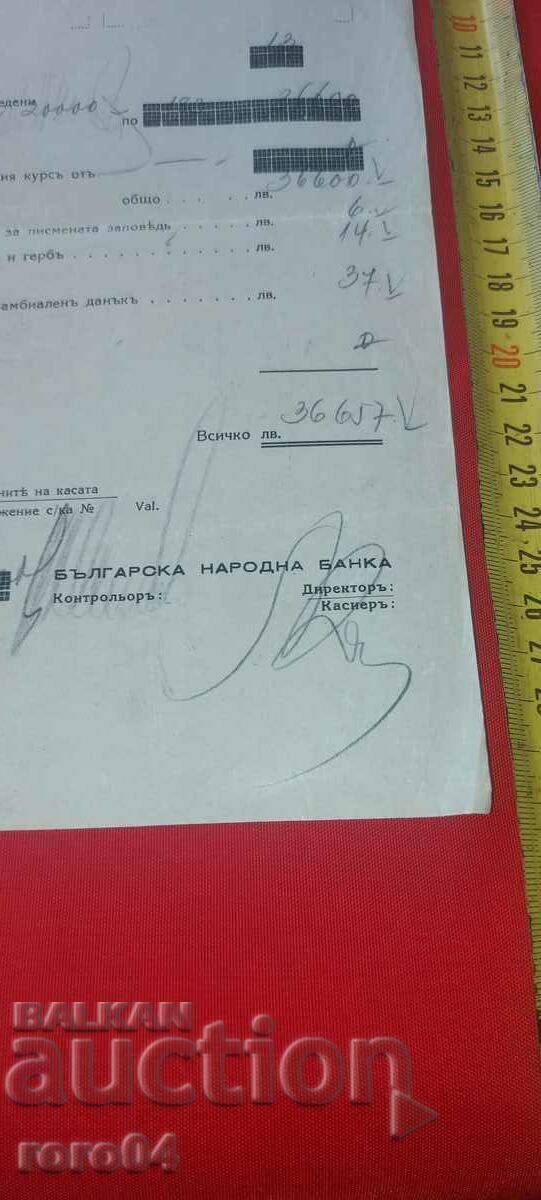 13
едени 20000 по 36600
ия курсъ отъ
общо . . . . . лв. 36600.
за писмената заповѣдь . . . . лв. 6.
и гербъ . . . . . . . . . . . лв. 14.
амбиаленъ данъкъ . . . . . . . лв. 37.
Всичко лв. 36657.
ните на касата
жение с/ка № Val.
БЪЛГАРСКА НАРОДНА БАНКА
Контрольоръ: Директоръ:
Касиеръ:
10
11
12
13
14
15
16
17
18
19
20
21
22
23
24
25
26
27
BALKAN
auction
roro04